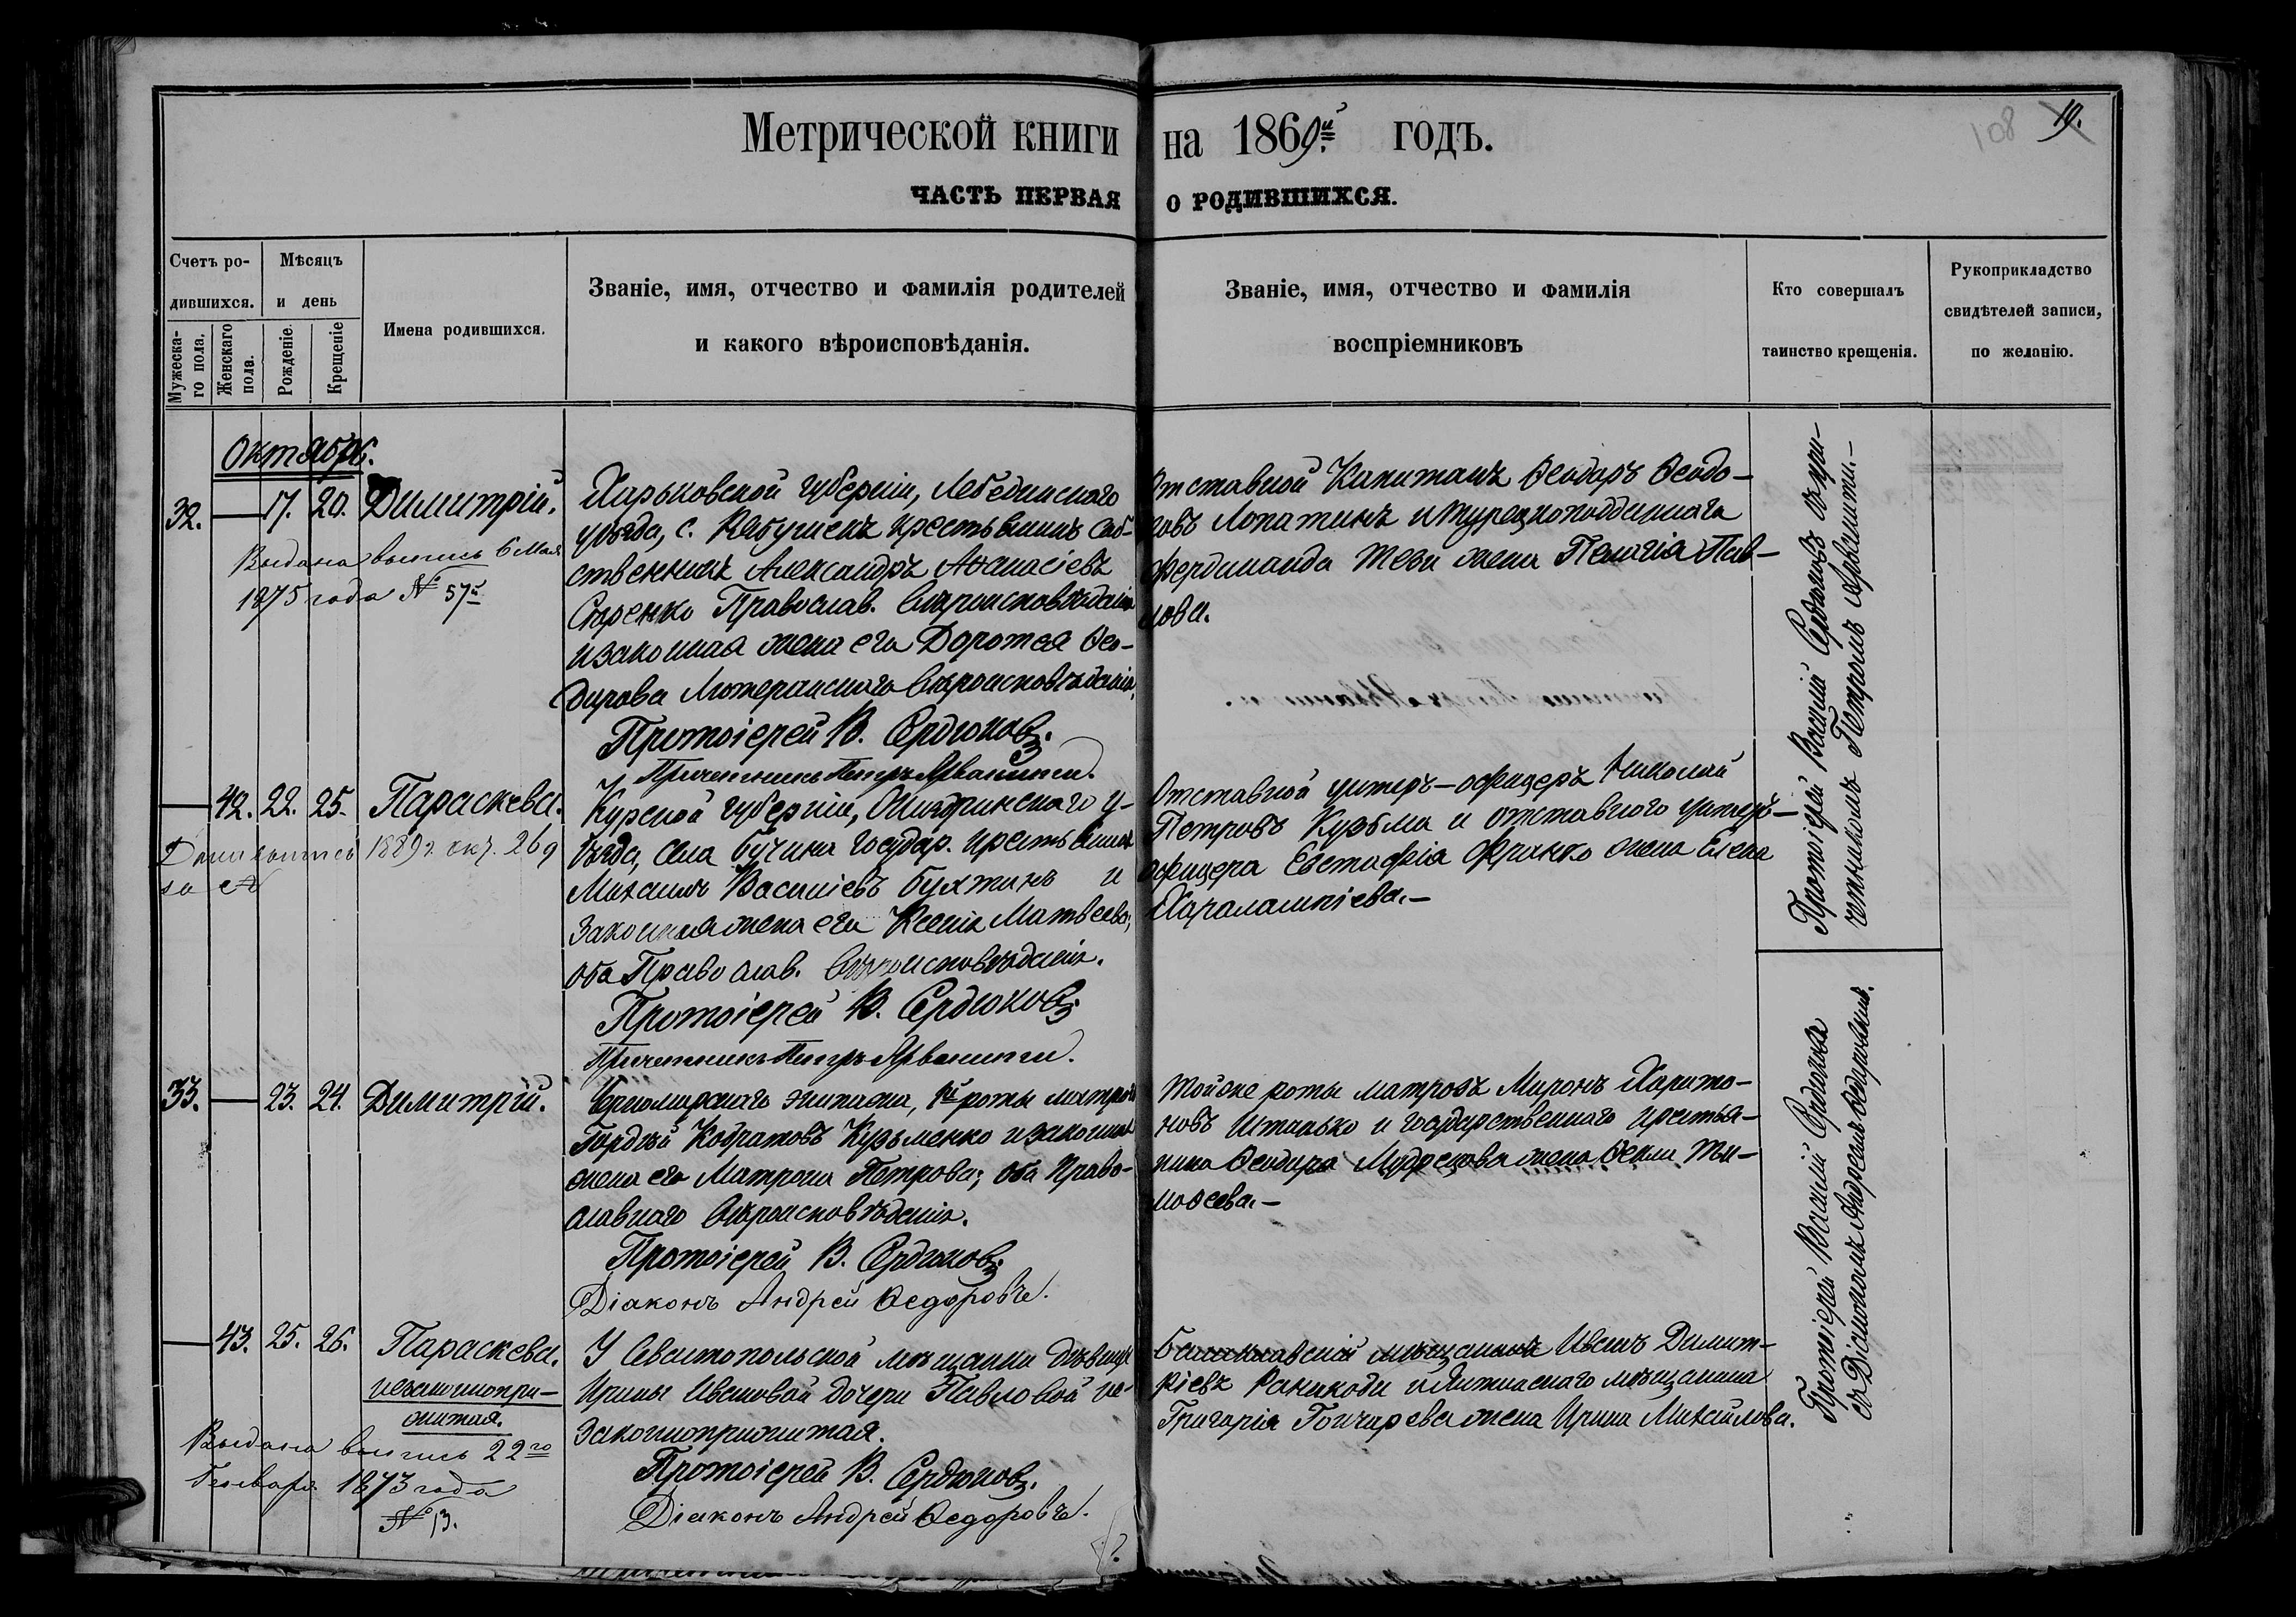 Метрической книги на 1869й годъ.
19.
108
ЧАСТЬ ПЕРВАЯ О РОДИВШИХСЯ.
Счетъ родившихся.
Мѣсяцъ и день
Мужескаго пола.
Женскаго пола.
Рожденіе.
Крещеніе
Имена родившихся.
Званіе, имя, отчество и фамилія родителей
и какого вѣроисповѣданія.
Званіе, имя, отчество и фамилія
воспріемниковъ
Кто совершалъ
таинство крещенія.
Рукоприкладство
свидѣтелей записи,
по желанію.
Октябрь.
32. — 17. 20. Димитрій.
Выдана выпись 6 Мая
1875 года № 57й
Харьковской губерніи, Лебединскаго
уѣзда, с. крестьянинъ соб-
ственникъ Александръ Аѳанасіевъ
Православ. вѣроисповѣданія
и законная жена его Доротея Ѳео-
дорова Лютеранскаго вѣроисповѣданія,
Протоіерей В. Сердюковъ.
Причетникъ Петръ Арванити.
Отставной Капитанъ Ѳеодоръ Ѳеодо-
ровъ Лопатинъ и турецкоподданнаго
Фердинанда жена Пелагія Пав-
лова.
Протоіерей Василій Сердюковъ съ при-
четникомъ Петромъ Арванити.—
— 42. 22. 25. Параскева.
1889 г. окт. 26
за №
Курской губерніи, у-
ѣзда, села государ. крестьянинъ
Михаилъ Василіевъ Бухтинъ и
законная жена его Ксенія Матвеева,
оба Православ. вѣроисповѣданія.
Протоіерей В. Сердюковъ.
Причетникъ Петръ Арванити.
Отставной унтеръ-офицеръ Николай
Петровъ Кузьма и отставного унтеръ-
офицера Евстафія Франко жена Елена
Харалампіева.—
33. — 23. 24. Димитрій.
Черноморскаго экипажа, 1й роты матросъ
Гордѣй Кодратовъ Кузьменко и законная
жена его Матрона Петрова; оба Право-
славнаго вѣроисповѣданія.
Протоіерей В. Сердюковъ.
Діаконъ Андрей Ѳедоровъ.
Той же роты матросъ Миронъ Харито-
новъ и государственнаго крестья-
нина Ѳеодора Мудрецова жена Ѳекла Ти-
моѳеева.—
Протоіерей Василій Сердюковъ
съ Діакономъ Андреемъ Ѳедоровымъ.
— 43. 25. 26. Параскева.
незаконнопри-
житая.
Выдана выпись 22го
Генваря 1873 года
№ 13.
У Севастопольской мѣщанки дѣвицы
Ирины Ивановой дочери Павловой не-
законноприжитая.
Протоіерей В. Сердюковъ.
Діаконъ Андрей Ѳедоровъ.
Балаклавскій мѣщанинъ Иванъ Димит-
ріевъ и Ялтинскаго мѣщанина
Григорія Гончарева жена Ирина Михайлова.